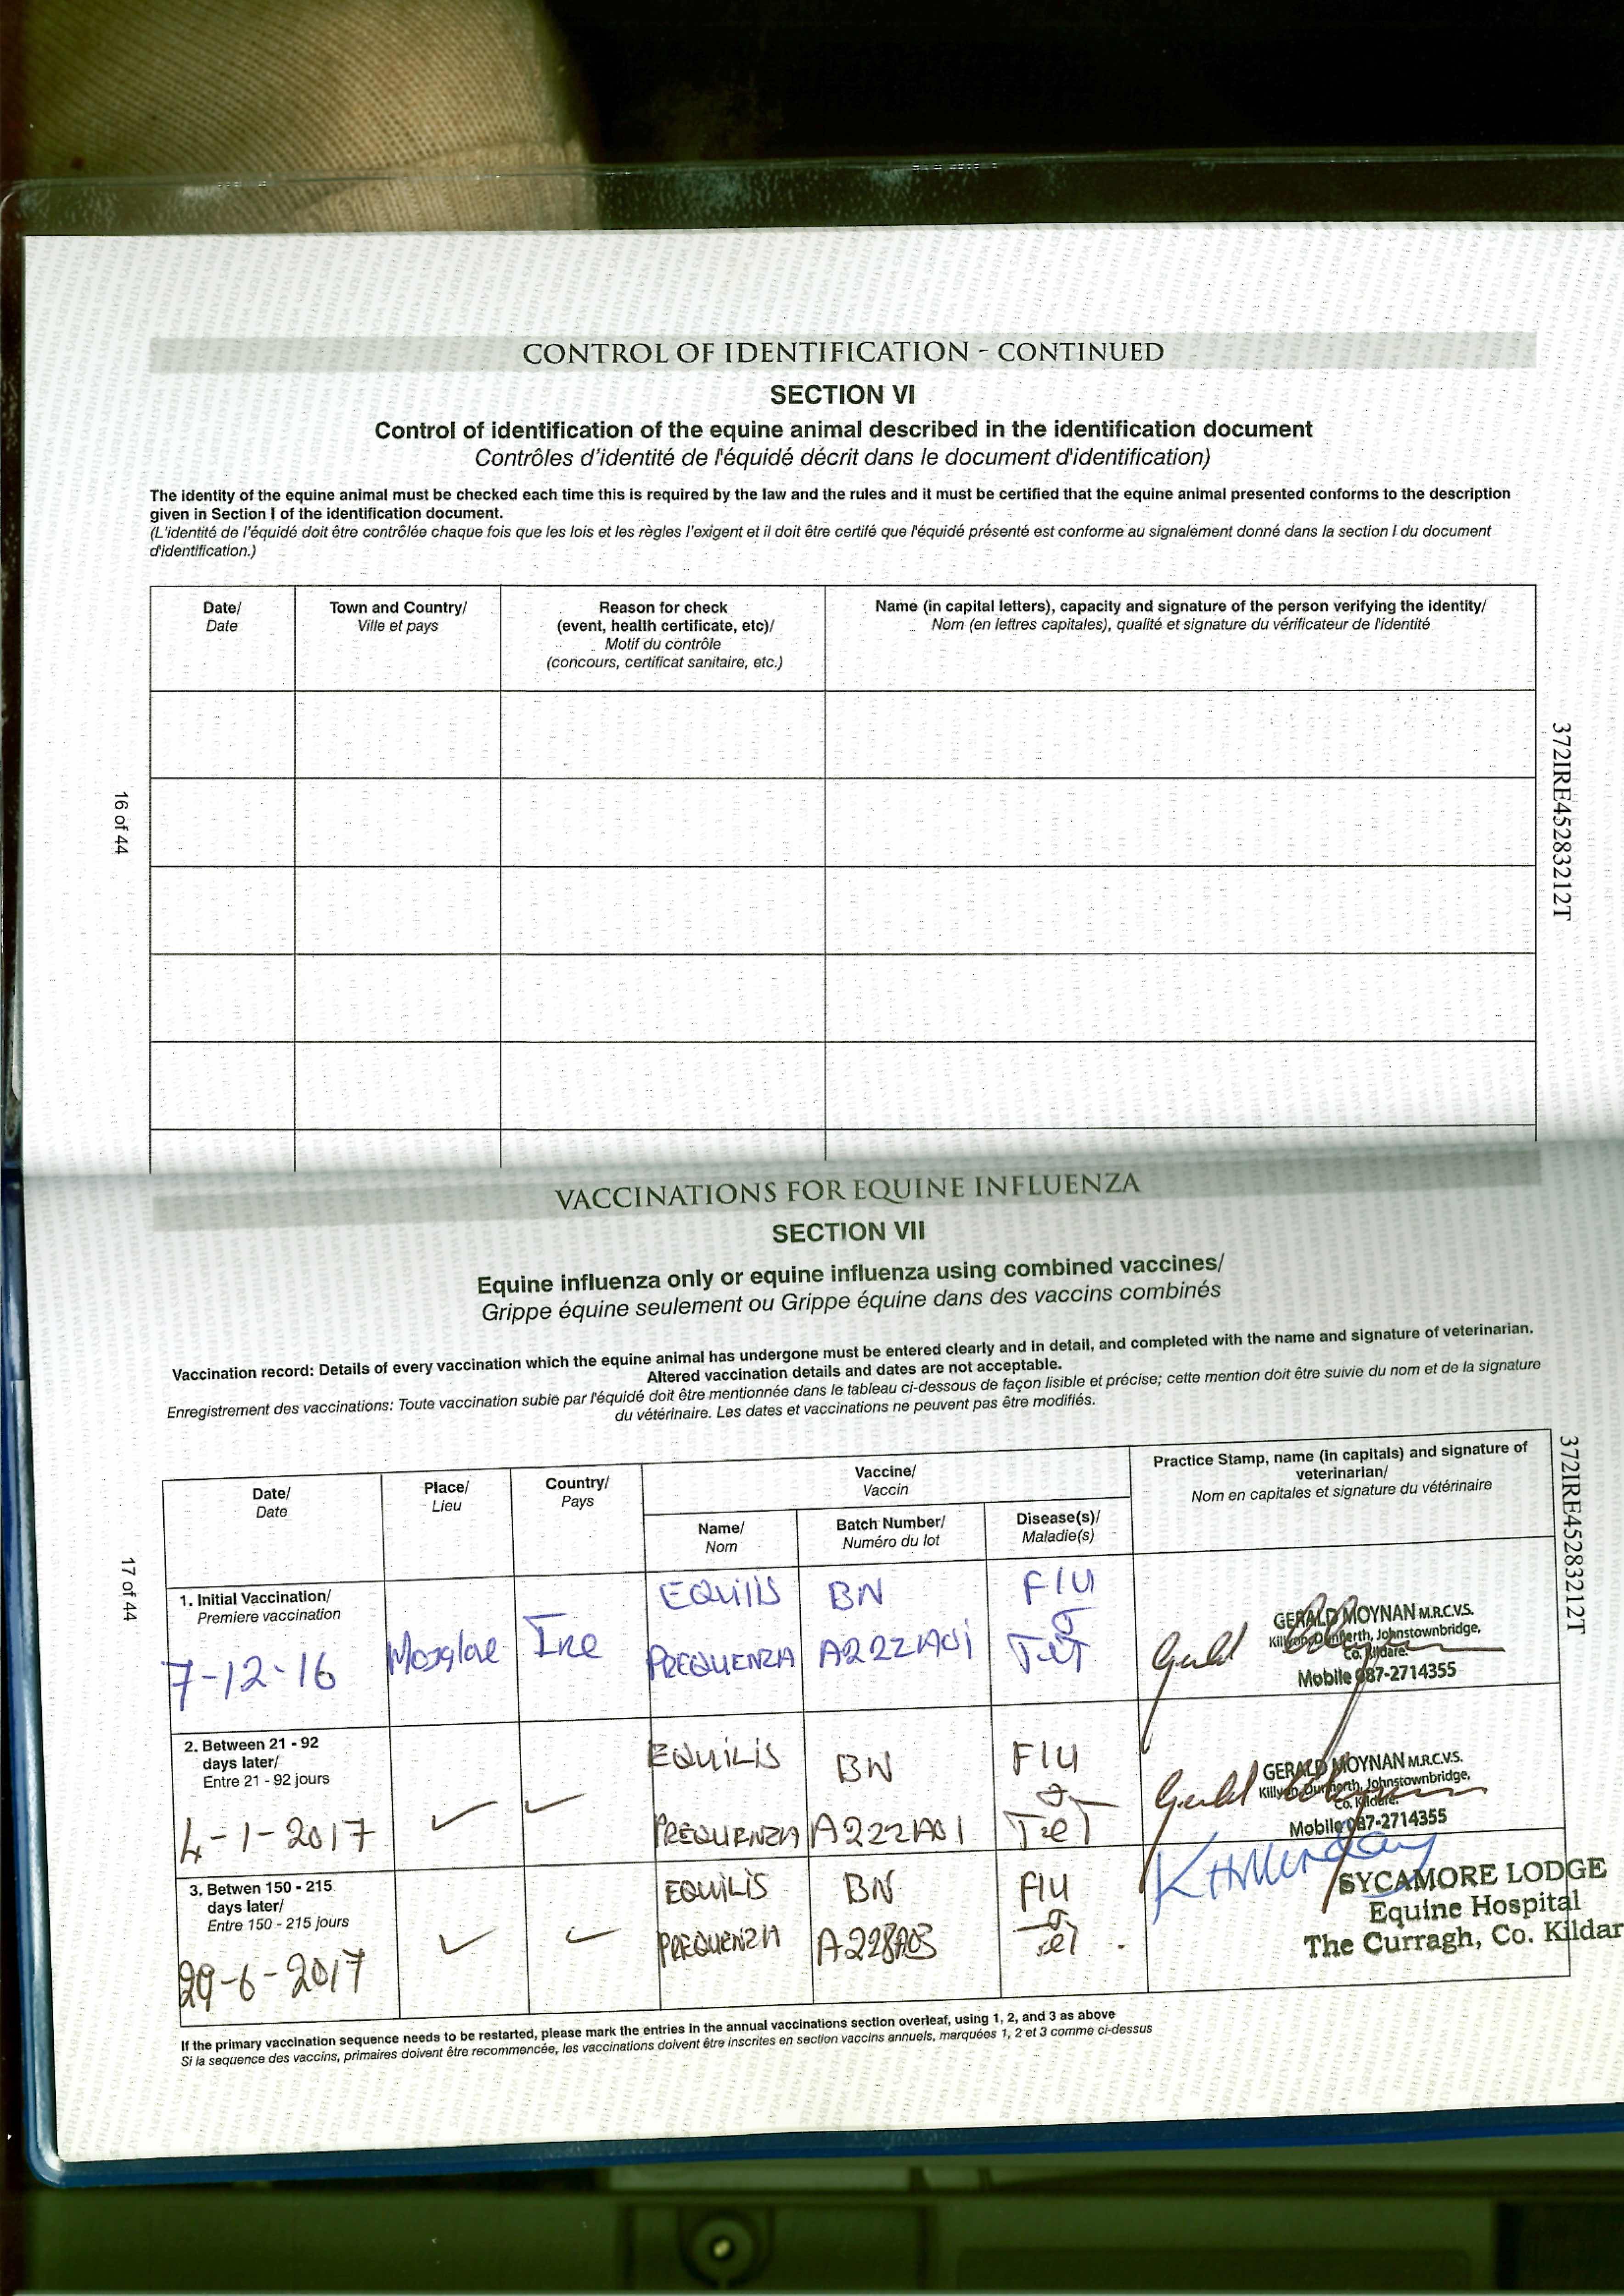 CONTROL OF IDENTIFICATION - CONTINUED
SECTION VI
Control of identification of the equine animal described in the identification document
Contrôles d'identité de l'équidé décrit dans le document d'identification)
The identity of the equine animal must be checked each time this is required by the law and the rules and it must be certified that the equine animal presented conforms to the description
given in Section I of the identification document.
(L'identité de l'équidé doit être contrôlée chaque fois que les lois et les règles l'exigent et il doit être certifé que l'équidé présenté est conforme au signalement donné dans la section I du document
d'identification.)
Date/
Date
Town and Country/
Ville et pays
Reason for check
(event, health certificate, etc)/
Motif du contrôle
(concours, certificat sanitaire, etc.)
Name (in capital letters), capacity and signature of the person verifying the identity/
Nom (en lettres capitales), qualité et signature du vérificateur de l'identité
372IRE45283212T
16 of 44
VACCINATIONS FOR EQUINE INFLUENZA
SECTION VII
Equine influenza only or equine influenza using combined vaccines/
Grippe équine seulement ou Grippe équine dans des vaccins combinés
Vaccination record: Details of every vaccination which the equine animal has undergone must be entered clearly and in detail, and completed with the name and signature of veterinarian.
Altered vaccination details and dates are not acceptable.
Enregistrement des vaccinations: Toute vaccination subie par l'équidé doit être mentionnée dans le tableau ci-dessous de façon lisible et précise; cette mention doit être suivie du nom et de la signature
du vétérinaire. Les dates et vaccinations ne peuvent pas être modifiés.
Date/
Date
Place/
Lieu
Country/
Pays
Vaccine/
Vaccin
Name/
Nom
Batch Number/
Numéro du lot
Disease(s)/
Maladie(s)
Practice Stamp, name (in capitals) and signature of
veterinarian/
Nom en capitales et signature du vétérinaire
372IRE45283212T
17 of 44
1. Initial Vaccination/
Premiere vaccination
7-12-16
Ire
EQUILIS
PREQUENZA
BN
A222A01
Flu
&
Tet
GERALD MOYNAN M.R.C.V.S.
Killyon, Dunfierth, Johnstownbridge,
Co. Kildare.
Mobile 087-2714355
2. Between 21 - 92
days later/
Entre 21 - 92 jours
4-1-2017
✓
✓
EQUILIS
PREQUENZA
BN
A222A01
Flu
&
Tet
GERALD MOYNAN M.R.C.V.S.
Killyon, Dunfierth, Johnstownbridge,
Co. Kildare.
Mobile 087-2714355
3. Betwen 150 - 215
days later/
Entre 150 - 215 jours
29-6-2017
✓
✓
EQUILIS
PREQUENZA
BN
A228A03
Flu
&
Tet
SYCAMORE LODGE
Equine Hospital
The Curragh, Co. Kildar
If the primary vaccination sequence needs to be restarted, please mark the entries in the annual vaccinations section overleaf, using 1, 2, and 3 as above
Si la sequence des vaccins, primaires doivent être recommencée, les vaccinations doivent être inscrites en section vaccins annuels, marquées 1, 2 et 3 comme ci-dessus